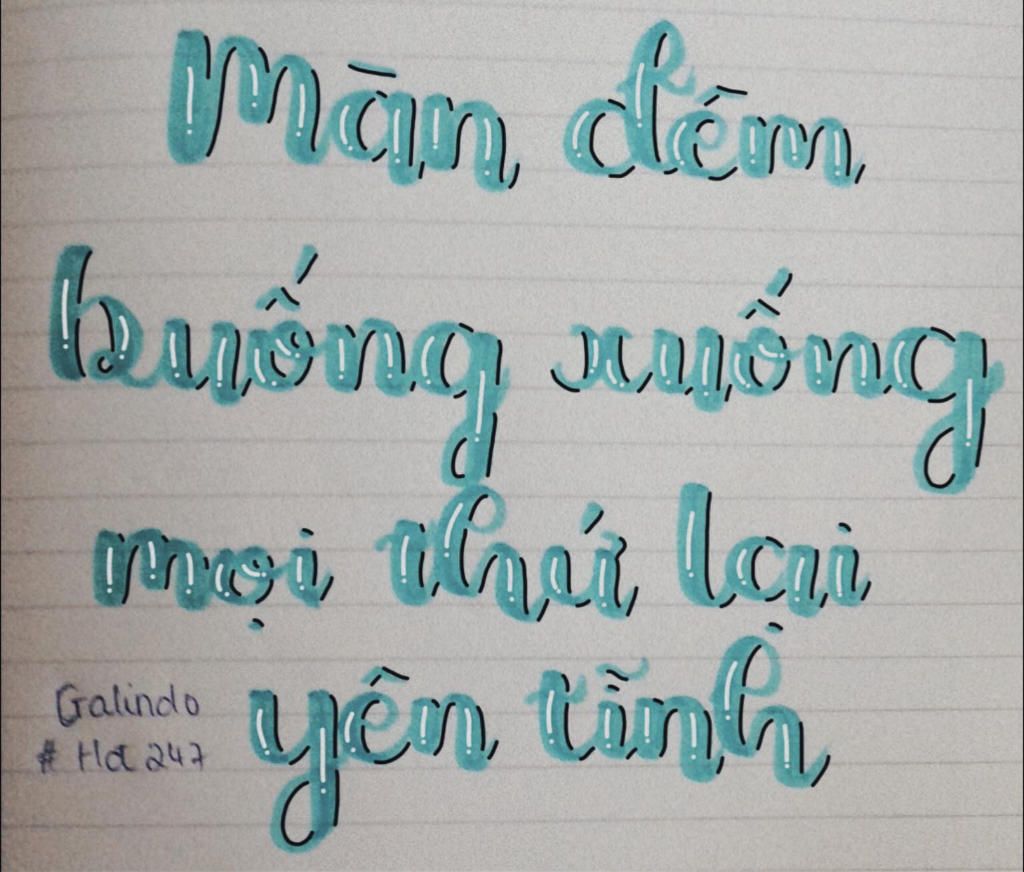 Màn đêm
buống xuống
mọi thứ lại
yên tĩnh
Galindo
# Ha 247